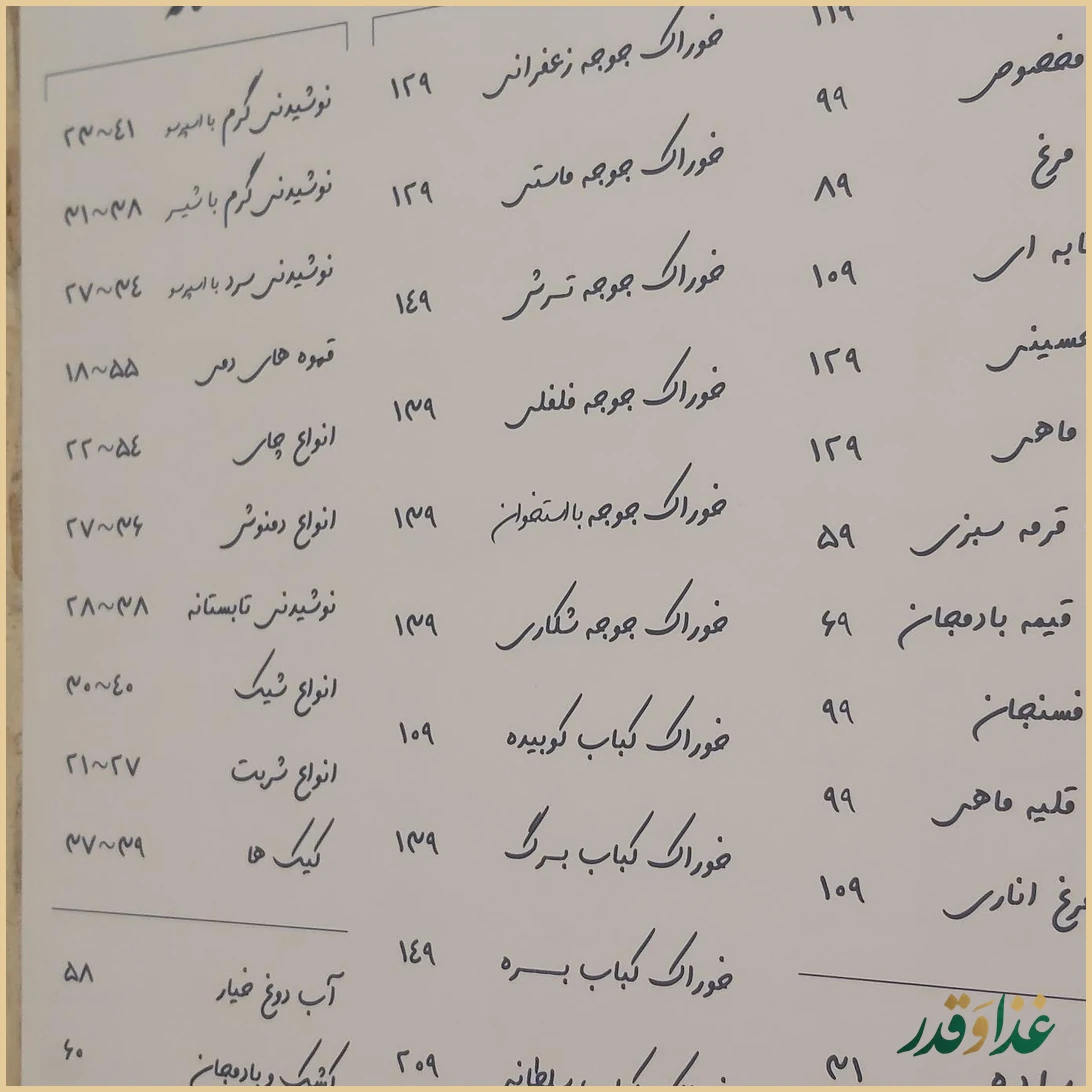 ۱۱۹
مخصوص ۹۹
مرغ ۸۹
ابه ای ۱۰۹
۱۲۹
ماهی ۱۲۹
قرمه سبزی ۵۹
قیمه بادمجان ۶۹
فسنجان ۹۹
قلیه ماهی ۹۹
مرغ اناری ۱۰۹
۳۱
خوراک جوجه زعفرانی ۱۲۹
خوراک جوجه ماستی ۱۲۹
خوراک جوجه ترش ۱٤۹
خوراک جوجه فلفلی ۱۳۹
خوراک جوجه با استخوان ۱۳۹
خوراک جوجه شکاری ۱۳۹
خوراک کباب کوبیده ۱۰۹
خوراک کباب برگ ۱۳۹
خوراک کباب بره ۱٤۹
خوراک کباب سلطانی ۲۰۹
نوشیدنی گرم با اسپرسو ۲۳~٤۱
نوشیدنی گرم با شیر ۳۱~۳۸
نوشیدنی سرد با اسپرسو ۲۷~۳٤
قهوه های دمی ۱۸~۵۵
انواع چای ۲۲~۵٤
انواع دمنوش ۲۷~۳۶
نوشیدنی تابستانه ۲۸~۳۸
انواع شیک ۳۰~٤۰
انواع شربت ۲۱~۲۷
کیک ها ۳۷~۳۹
آب دوغ خیار ۵۸
کشک و بادمجان ۶۰
غذا و قدر